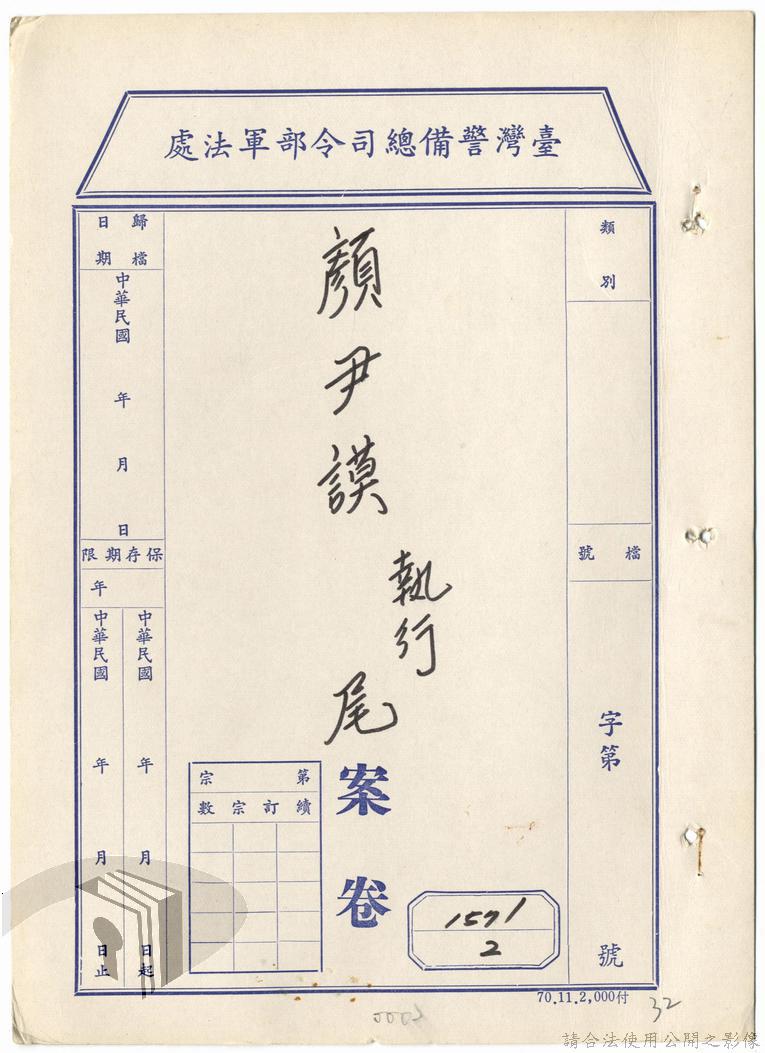 臺灣警備總司令部軍法處
類別
檔號
字第
號
顏尹謨
執行
尾
案卷
第宗
續訂宗數
1571
2
歸檔日期
中華民國
年
月
日
保存期限
年
中華民國
年
月
日起
中華民國
年
月
日止
70.11.2,000付
32
請合法使用公開之影像